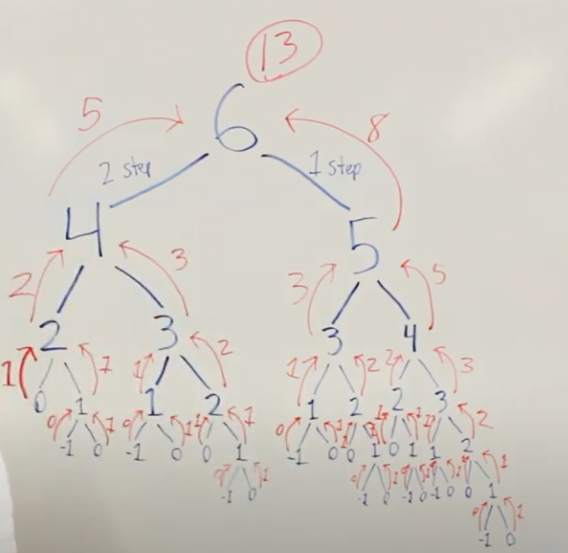 13
5 6 8
2 step 1 step
4 5
2 3 3 5
2 3 3 4
1 1 1 2 1 2 2 3
0 1 1 2 1 2 2 3
0 1 0 1 1 1 0 1 2
-1 0 -1 0 0 1 -1 0 0 1 0 1 1 2
0 1 1
-1 0 -1 0 -1 0 -1 0 0 1
0 1
-1 0